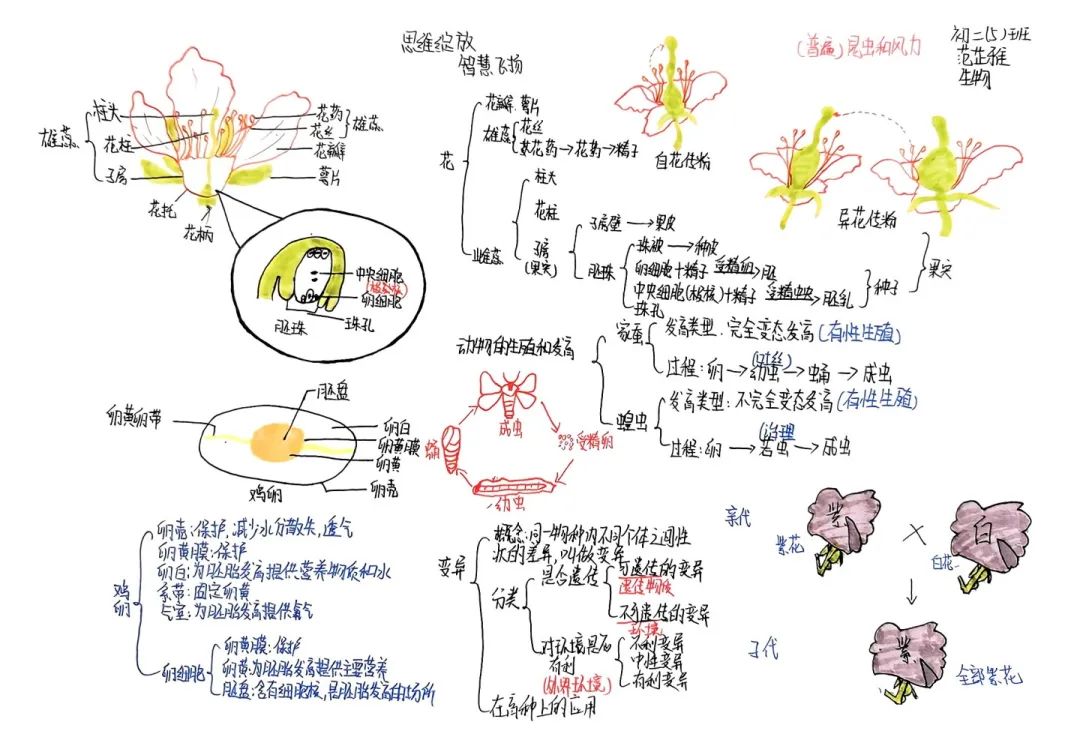 思维绽放
智慧飞扬
(普遍)昆虫和风力
初二(5)班
范芷雅
生物
雄蕊
柱头
花柱
子房
花托
花柄
花药
花丝
雄蕊
花瓣
萼片
中央细胞
(极核)
卵细胞
胚珠
珠孔
花
花瓣、萼片
雄蕊
花丝
花药→花药→精子
雌蕊
柱头
花柱
子房
(果实)
子房壁→果皮
胚珠
珠被→种皮
卵细胞+精子 受精卵→胚
中央细胞(极核)+精子 受精中央→胚乳
珠孔
种子
果实
自花传粉
异花传粉
动物的生殖和发育
家蚕
发育类型:完全变态发育(有性生殖)
(吐丝)
过程:卵→幼虫→蛹→成虫
蝗虫
发育类型:不完全变态发育(有性生殖)
(治理)
过程:卵→若虫→成虫
成虫
受精卵
幼虫
蛹
胚盘
卵黄卵带
卵白
卵黄膜
卵黄
卵壳
鸡卵
鸡卵
卵壳:保护,减少水分散失,透气
卵黄膜:保护
卵白:为胚胎发育提供营养物质和水
系带:固定卵黄
气室:为胚胎发育提供氧气
卵细胞
卵黄膜:保护
卵黄:为胚胎发育提供主要营养
胚盘:含有细胞核,是胚胎发育的场所
变异
概念:同一物种内不同个体之间性
状的差异,叫做变异
分类
是否遗传
可遗传的变异
遗传物质
不可遗传的变异
环境
对环境是否
有利
(外界环境)
不利变异
中性变异
有利变异
在育种上的应用
亲代
紫花
紫
×
白
白花
子代
紫
全部紫花